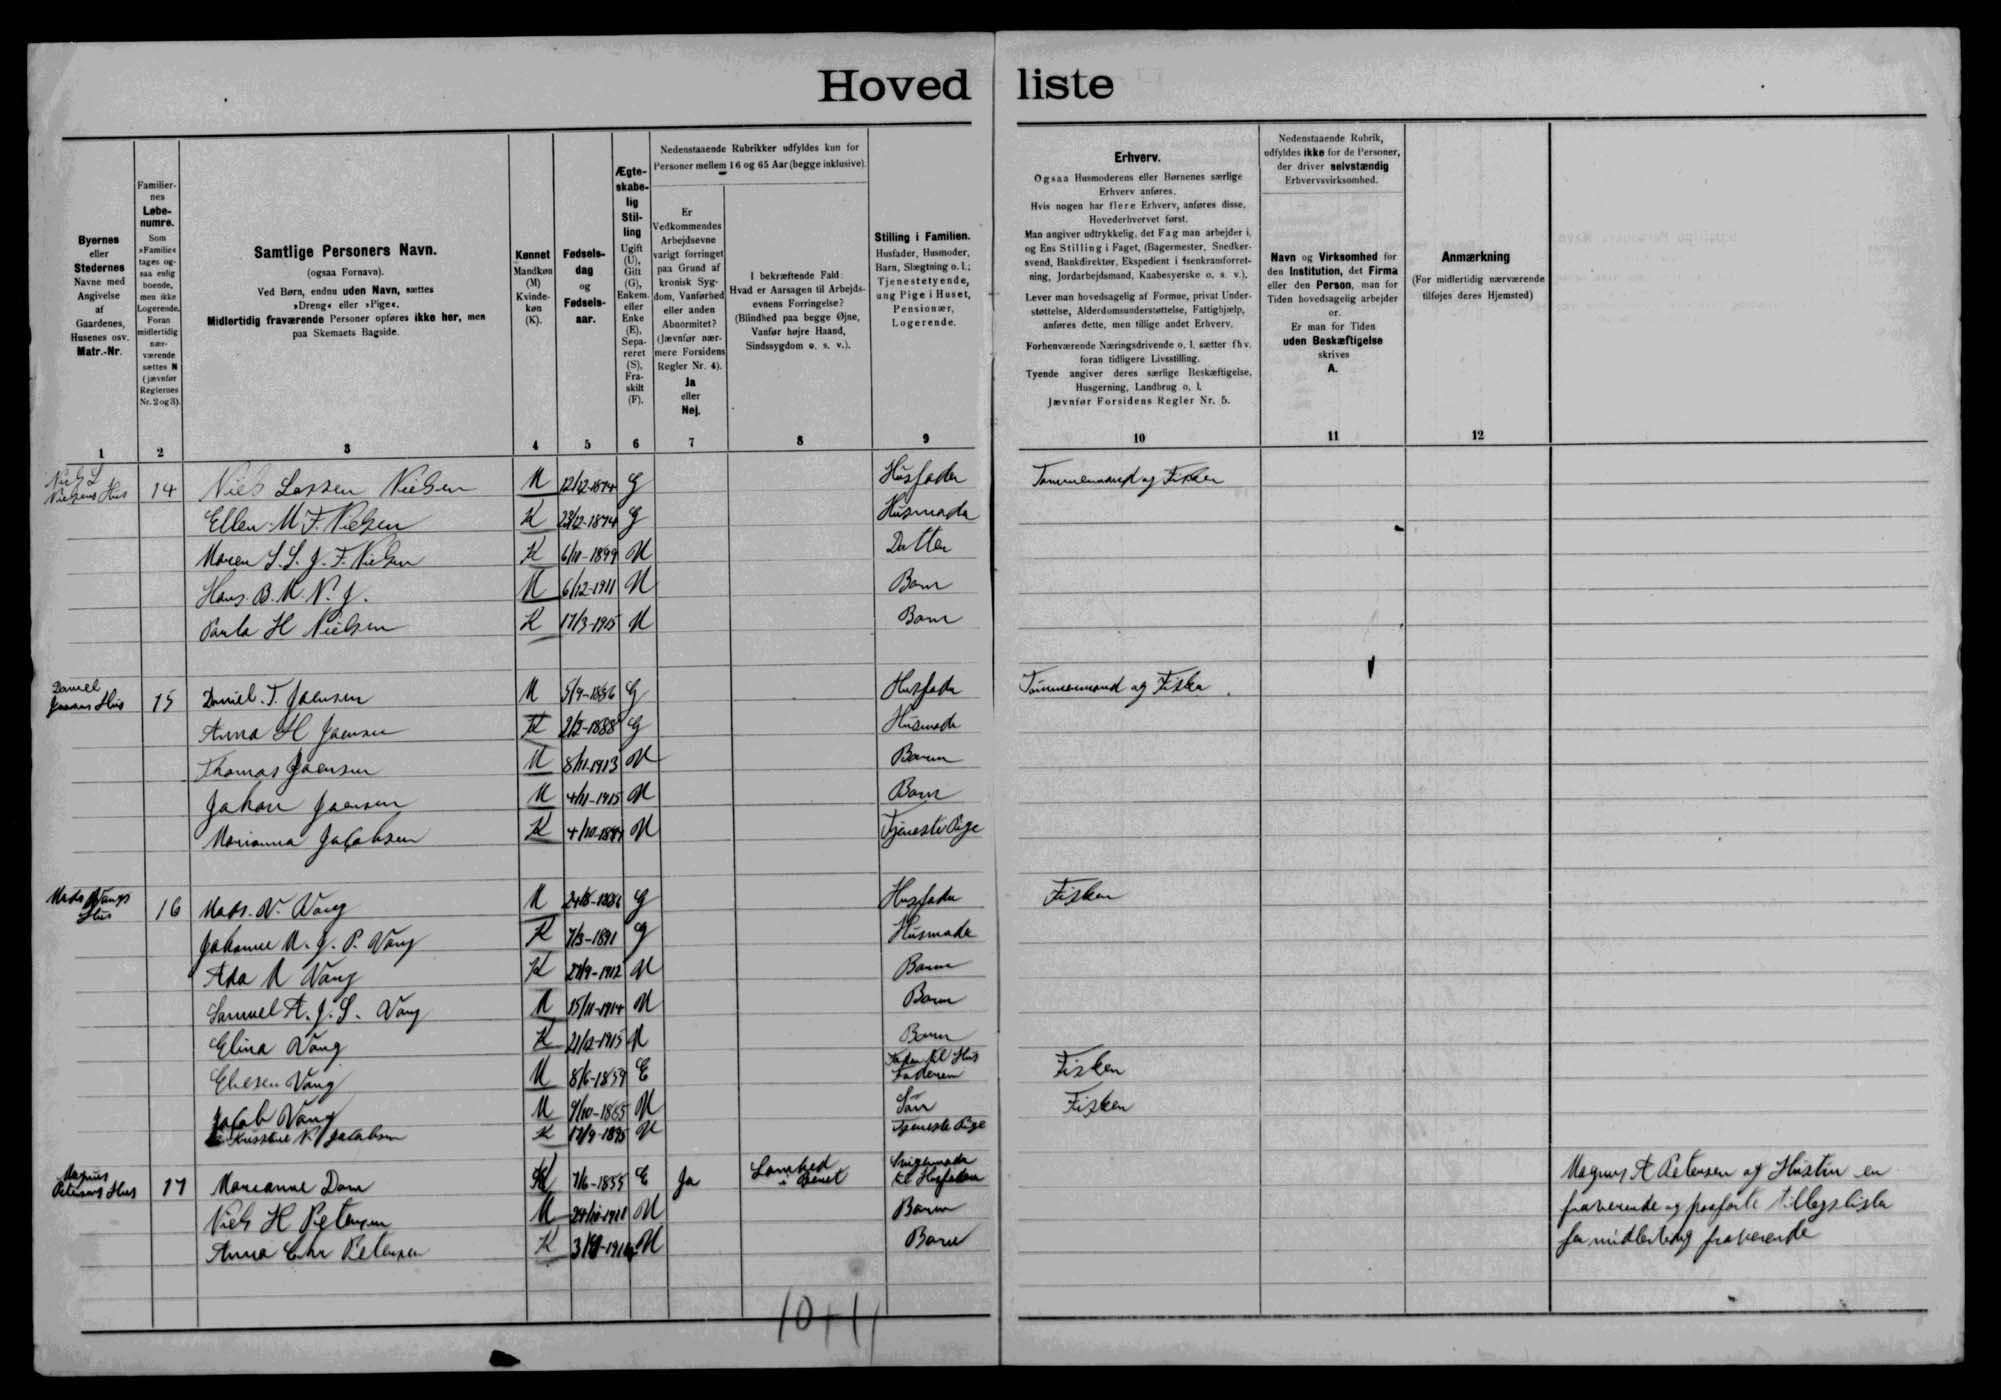 Hovedliste
Byernes eller Stedernes Navne med Angivelse af Gaardenes, Husenes osv. Matr.-Nr.
Familiernes Løbenumre. Som »Familie« tages ogsaa enlig boende, men ikke Logerende. Foran midlertidig nærværende sættes N (jævnfør Reglernes Nr. 2 og 3).
Samtlige Personers Navn.
(ogsaa Fornavn).
Ved Børn, endnu uden Navn, sættes
»Dreng« eller »Pige«.
Midlertidig fraværende Personer opføres ikke her, men
paa Skemaets Bagside.
Kønnet Mandkøn (M) Kvindekøn (K).
Fødselsdag og Fødselsaar.
Ægteskabelig Stilling Ugift (U), Gift (G), Enkem. eller Enke (E), Separeret (S), Fraskilt (F).
Nedenstaaende Rubrikker udfyldes kun for
Personer mellem 16 og 65 Aar (begge inklusive).
Er Vedkommendes Arbejdsevne varigt forringet paa Grund af kronisk Sygdom, Vanførhed eller anden Abnormitet? (Jævnfør nærmere Forsidens Regler Nr. 4). Ja eller Nej.
I bekræftende Fald: Hvad er Aarsagen til Arbejdsevnens Forringelse? (Blindhed paa begge Øjne, Vanfør højre Haand, Sindssygdom o. s. v.).
Stilling i Familien.
Husfader, Husmoder, Barn, Slægtning o. l.; Tjenestetyende, ung Pige i Huset, Pensionær, Logerende.
Erhverv.
Ogsaa Husmoderens eller Børnenes særlige
Erhverv anføres.
Hvis nogen har flere Erhverv, anføres disse,
Hovederhvervet først.
Man angiver udtrykkelig, det Fag man arbejder i,
og Ens Stilling i Faget, (Bagermester, Snedker-
svend, Bankdirektør, Ekspedient i Isenkramforret-
ning, Jordarbejdsmand, Kaabesyerske o. s. v.).
Lever man hovedsagelig af Formue, privat Under-
støttelse, Alderdomsunderstøttelse, Fattighjælp,
anføres dette, men tillige andet Erhverv.
Forhenværende Næringsdrivende o. l. sætter fhv.
foran tidligere Livsstilling.
Tyende angiver deres særlige Beskæftigelse,
Husgerning, Landbrug o. l.
Jævnfør Forsidens Regler Nr. 5.
Nedenstaaende Rubrik,
udfyldes ikke for de Personer,
der driver selvstændig
Erhvervsvirksomhed.
Navn og Virksomhed for
den Institution, det Firma
eller den Person, man for
Tiden hovedsagelig arbejder
for.
Er man for Tiden
uden Beskæftigelse
skrives
A.
Anmærkning
(For midlertidig nærværende
tilføjes deres Hjemsted)
1 2 3 4 5 6 7 8 9 10 11 12
Niels L Nielsens Hus 14 Niels Lassen Nielsen M 12/12-1874 G Husfader Tømmermand og Fisker
Ellen M F. Nielsen K 23/12-1874 G Husmoder
Maren S. S. J. F. Nielsen K 6/11-1899 U Datter
Hans B. M. N. J. M 6/12-1911 U Barn
Paula H Nielsen K 17/3-1915 U Barn
Daniel Joensens Hus 15 Daniel T. Joensen M 5/9-1886 G Husfader Tømmermand og Fisker
Anna H Joensen K 2/2-1888 G Husmoder
Thomas Joensen M 8/11-1913 U Barn
Johan Joensen M 4/11-1915 U Barn
Marianna Jacobsen K 4/10-18 U Tjeneste Pige
Mads Vangs Hus 16 Mads. V. Vang M 24/8-1886 G Husfader Fisker
Johanne M. J. P. Vang K 7/3-1891 G Husmoder
Ada M Vang K 27/9-1912 U Barn
Samuel A. J. S. Vang M 15/11-1914 U Barn
Elina Vang K 21/12-1915 U Barn
Eliesar Vang M 8/6-1859 E Fader til Husfaderen Fisker
Jacob Vang M 9/10-1865 U Søn Fisker
Kristine N Jacobsen K 17/9-1895 U Tjeneste Pige
Magnus Petersens Hus 17 Marianne Dam K 7/6-1855 E Ja Lamhed i Benet Svigermoder til Husfaderen Magnus A Petersen og Hustru er
Niels H Petersen M 24/10-1911 U Barn fraværende og paaførte tillægsliste
Anna Chr Petersen K 3/9-1914 U Barn for midlertidig fraværende
10+11